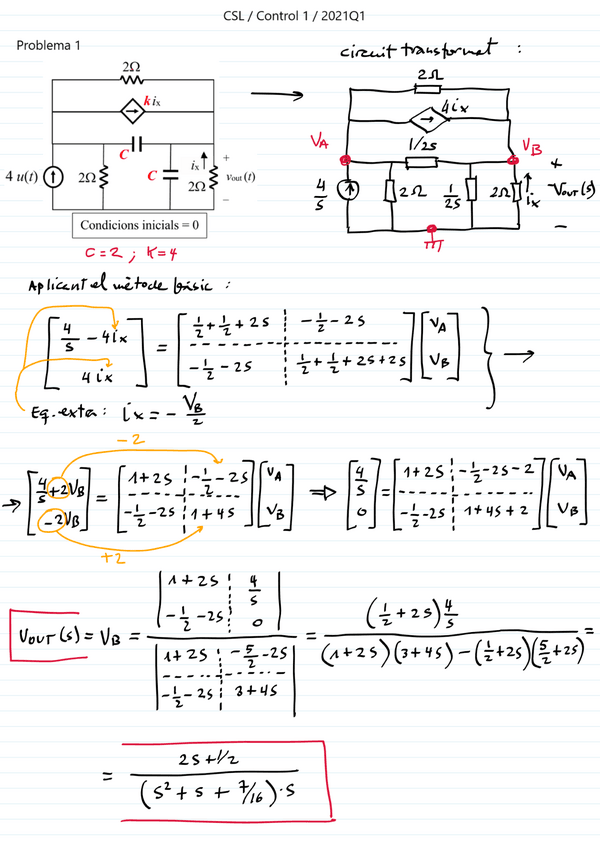 CSL / Control 1 / 2021Q1
Problema 1
circuit transformat :
2Ω
k ix
C
C
ix
+
4 u(t)
2Ω
2Ω
vout (t)
–
Condicions inicials = 0
C=2 ; K=4
2Ω
4ix
1/2S
VA
VB
+
4/S
2Ω
1/2S
2Ω
ix
Vout(s)
-
Aplicant el mètode bàsic :
[4/S - 4ix ; 4ix] = [1/2 + 1/2 + 2S , -1/2 - 2S ; -1/2 - 2S , 1/2 + 1/2 + 2S + 2S] [VA ; VB] } →
Eq. extra : ix = - VB/2
-2
→ [4/S + 2VB ; -2VB] = [1+2S , -1/2 - 2S ; -1/2 - 2S , 1+4S] [VA ; VB] ⇒ [4/S ; 0] = [1+2S , -1/2 - 2S - 2 ; -1/2 - 2S , 1+4S+2] [VA ; VB]
+2
Vout(s) = VB = |1+2S , 4/S ; -1/2 - 2S , 0| / |1+2S , -5/2 - 2S ; -1/2 - 2S , 3+4S| = (1/2 + 2S) 4/S / (1+2S)(3+4S) - (1/2 + 2S)(5/2 + 2S) =
= 2S + 1/2 / (S² + S + 7/16) · S